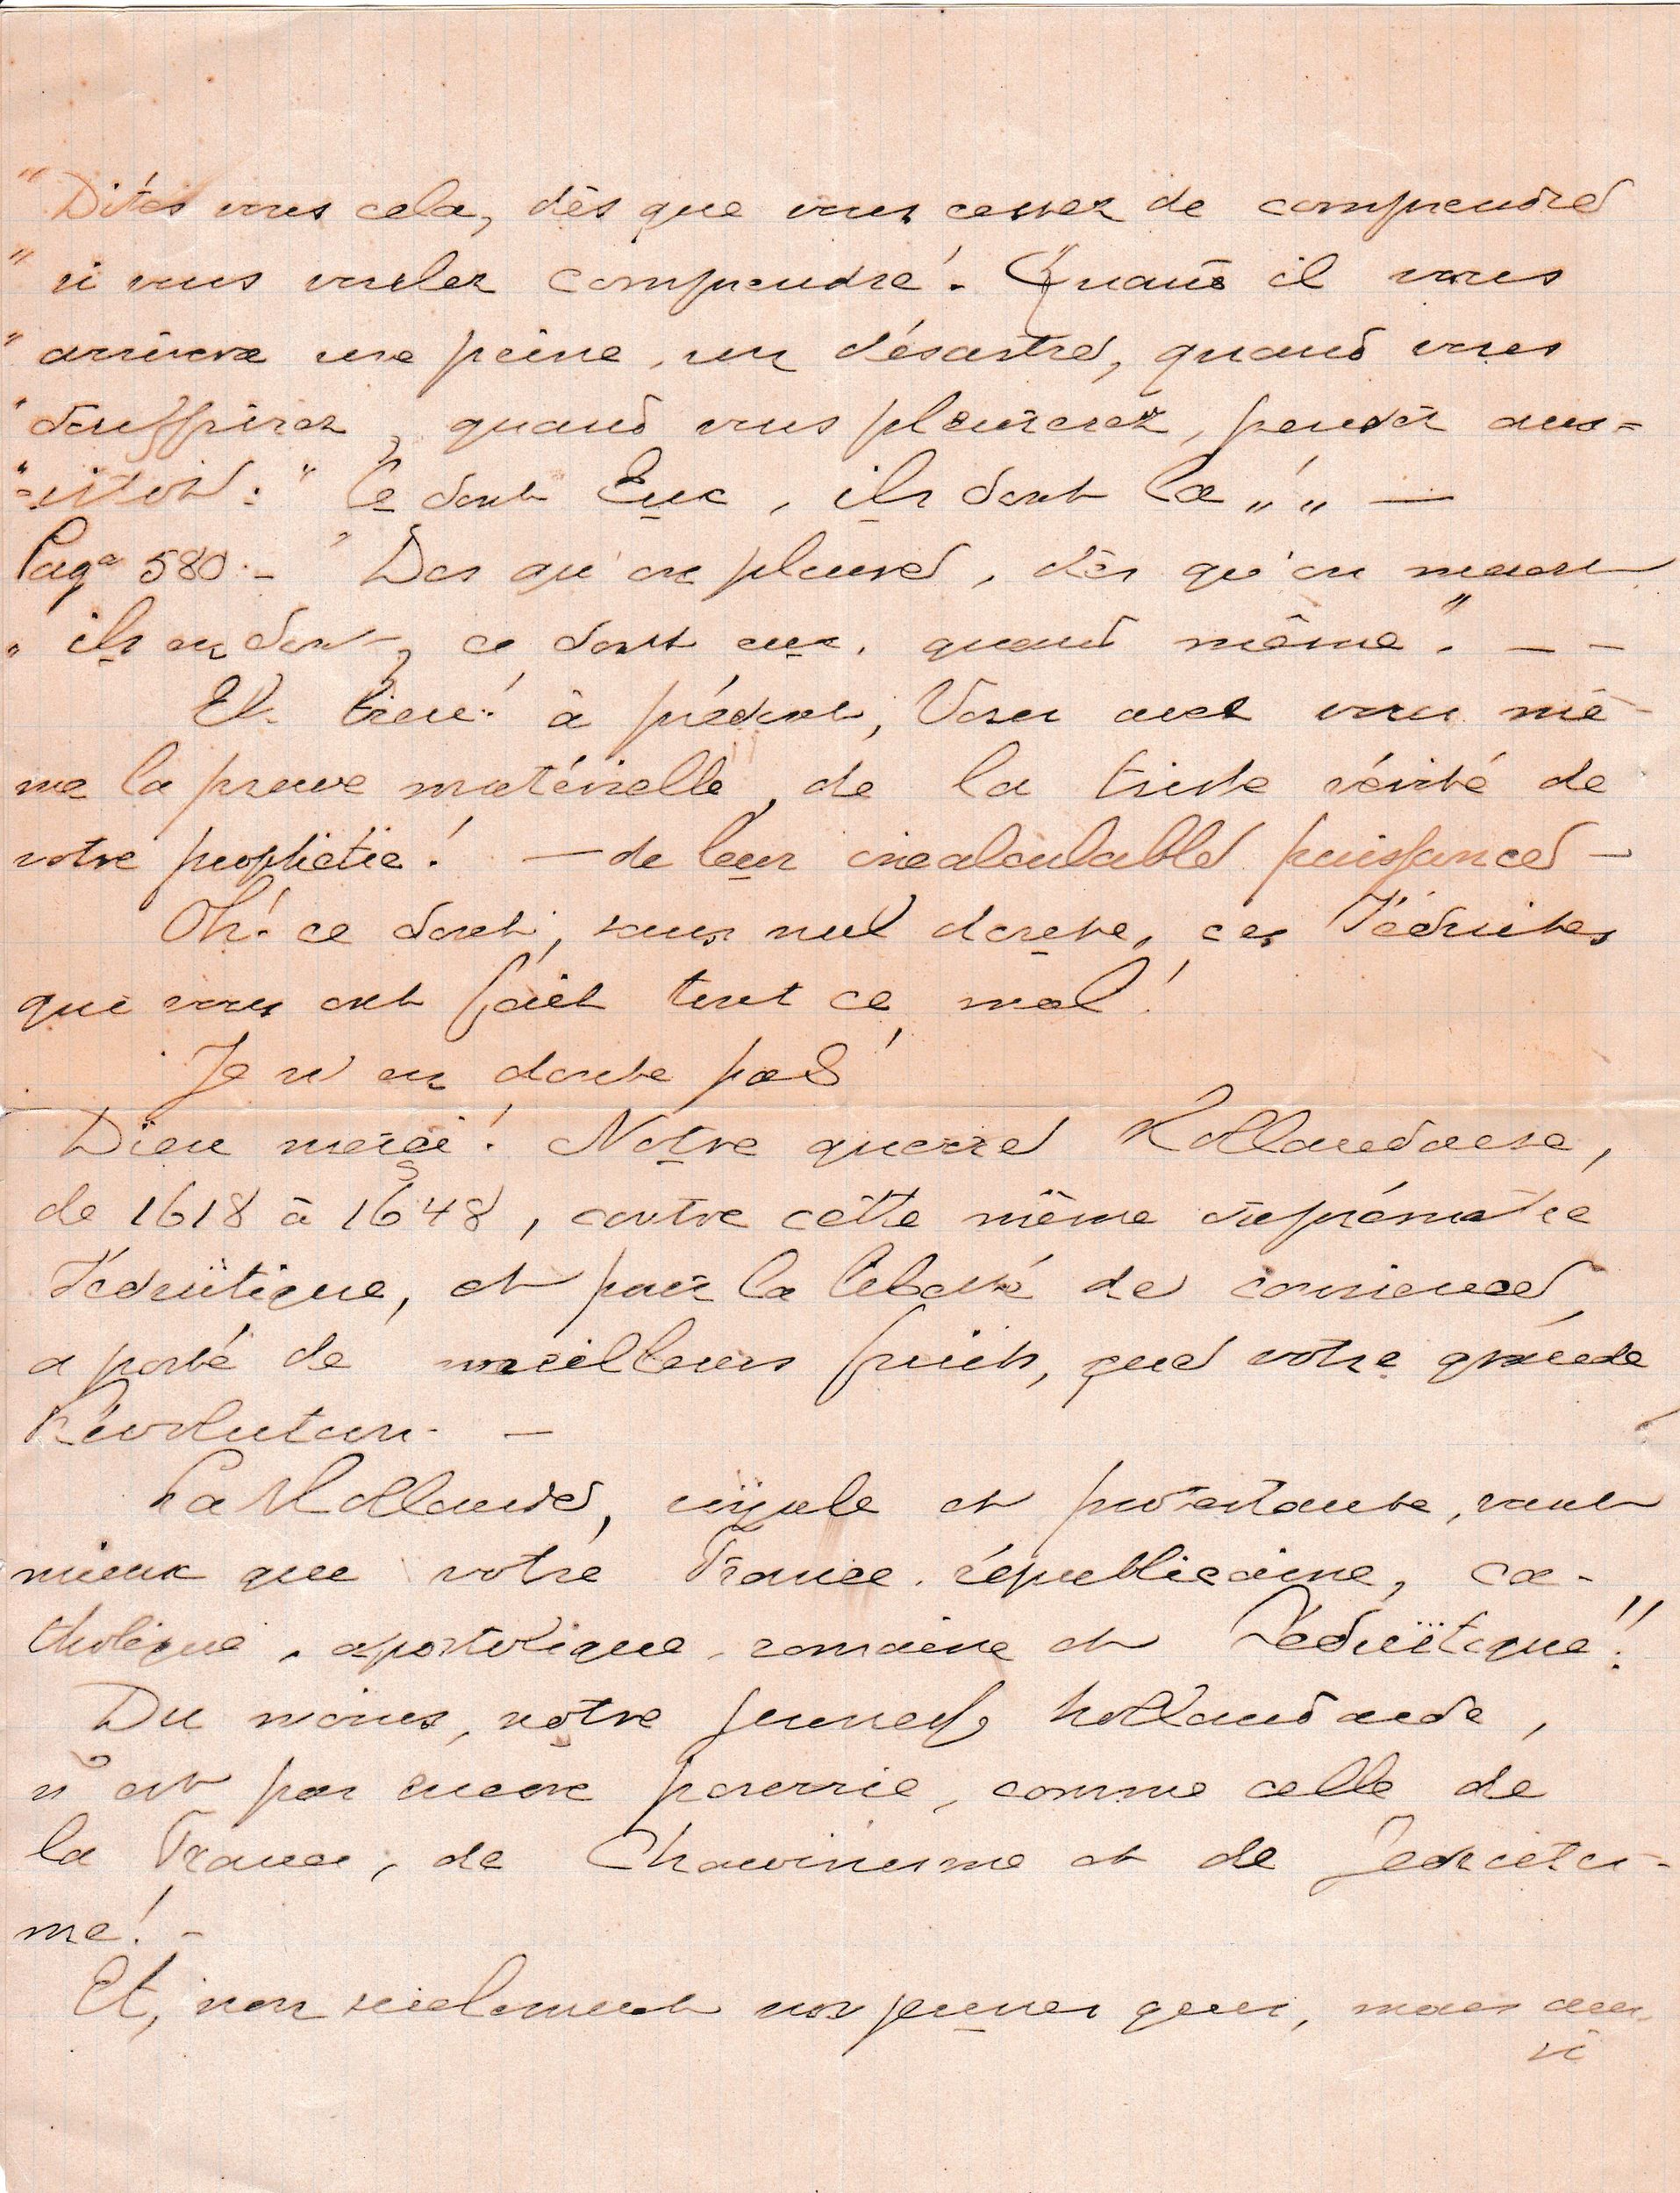 " Dites vous cela, dès que vous cessez de comprendre
" si vous voulez comprendre! Quand il vous
" arrivera une peine, un désastre, quand vous
" souffrirez, quand vous pleurerez, pensez aus=
" =sitôt: " Ce sont Eux, ils sont là " " —
Page 580 – " Dès qu'on pleure, dès qu'on meurt
" ils en sont, ce sont eux, quand même". — —
Eh bien! à présent, Vous avez vous mê-
me la preuve matérielle, de la triste vérité de
votre prophétie! — de leur incalculable puissance —
Oh! ce sont, sans nul doute, ces Jésuites
qui vous ont fait tout ce mal!
Je n'en doute pas!
Dieu merci! Notre guerre Hollandaise,
de 1618 à 1648, contre cette même suprématie
Jésuitique, et pour la liberté de conscience,
a porté de meilleurs fruits, que votre grande
Révolution. —
La Hollande, royale et protestante, vaut
mieux que votre France républicaine, ca-
tholique, apostolique, romaine et Jésuïtique!!
Du moins, notre jeunesse hollandaise,
n'est pas encore pourrie, comme celle de
la France, de Chauvinisme et de Jésuitis-
me! –
Et, non seulement nos jeunes gens, mais aus-
si